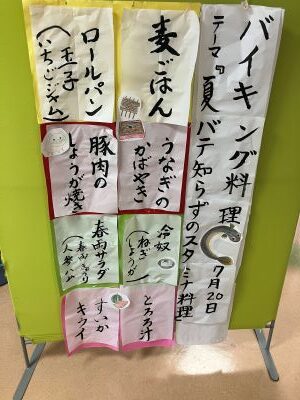 バイキング料理
テーマ『夏バテ知らずのスタミナ料理』
7月20日
麦ごはん
うなぎの
かばやき
冷奴
(ねぎ
しょうが)
とろろ汁
ロールパン
(玉子
いちごジャム)
豚肉の
しょうが焼き
春雨サラダ
(春雨 きゅうり
人参 ハム)
すいか
キウイ